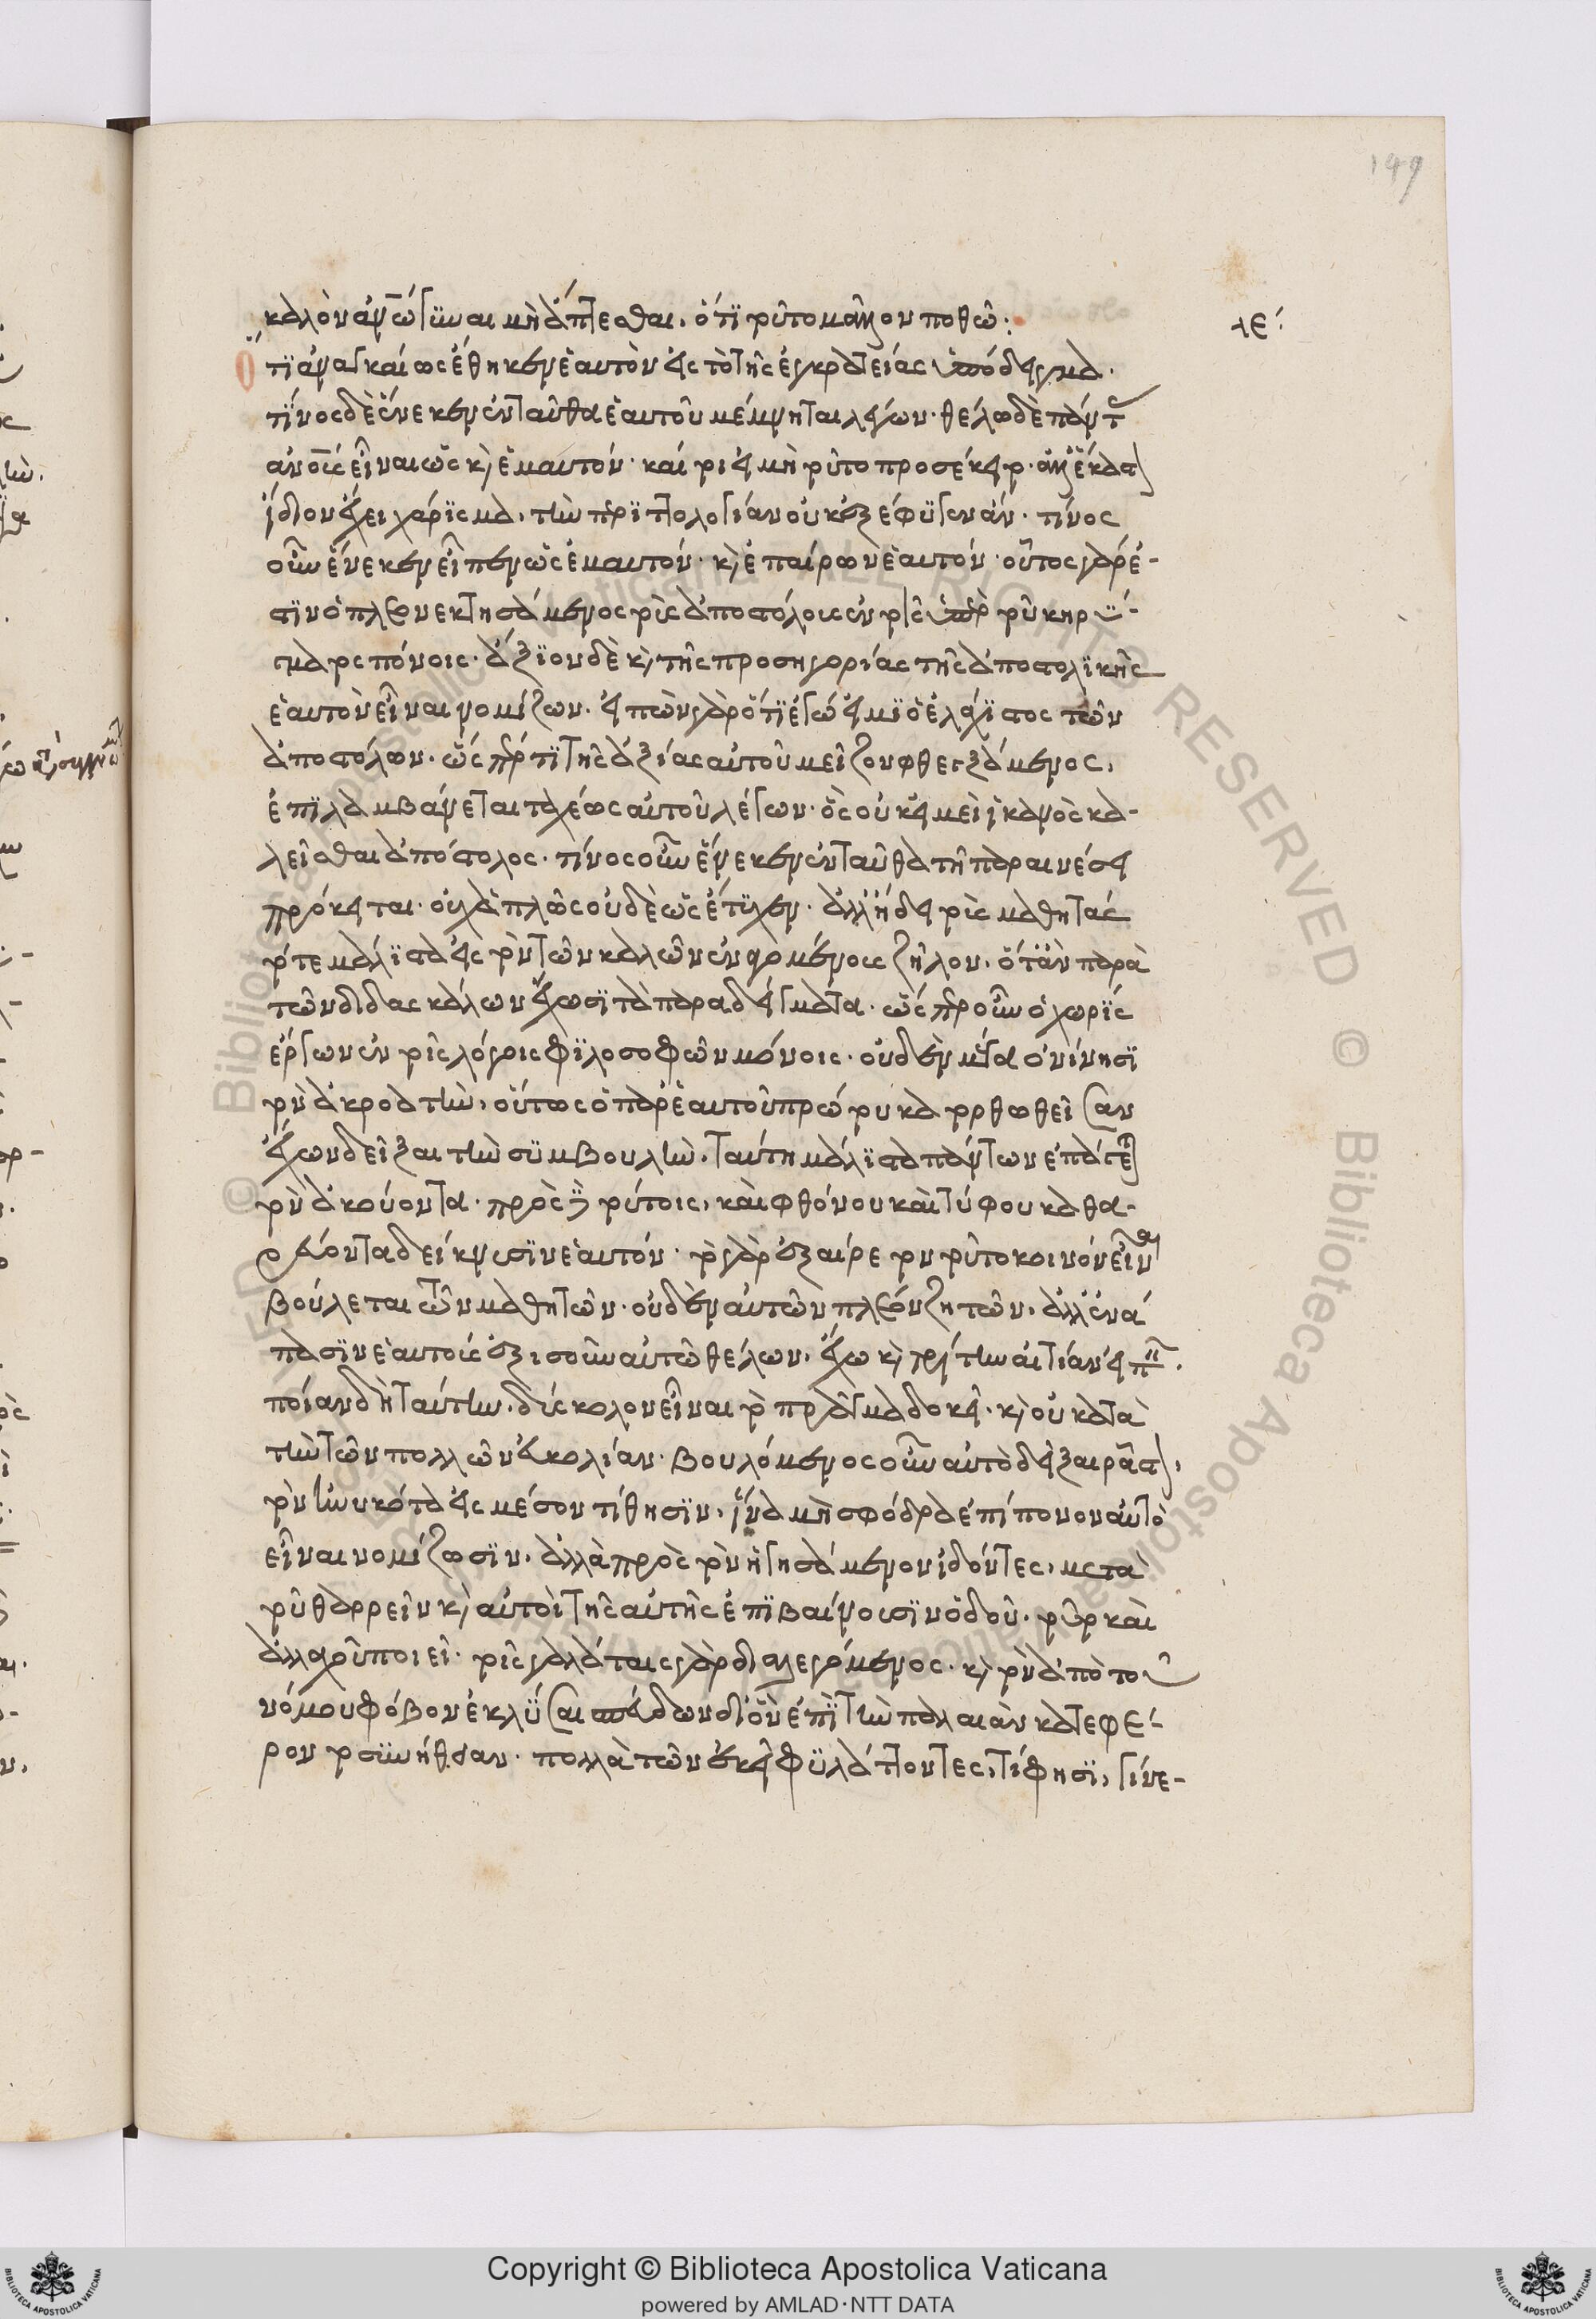 149
καλὸν ἀν̅ω̅ γυναικὶ μὴ ἅπτεσθαι. ὅτι τοῦτο μᾶλλον ποθῶ:
ιε΄
Ὅτι ἀναγκαίως ἔθηκεν ἑαυτὸν εἰς τὸ τῆς ἐγκρατείας ὑπόδειγμα.
τίνος δὲ ἕνεκεν ἐνταῦθα ἑαυτοῦ μέμνηται λέγων· θέλω δὲ πάντ
ἀν̅ο̅ι̅ς εἶναι ὡς κ(αὶ) ἐμαυτόν· καίτοι εἰ μὴ τοῦτο προσέκειτο. ἀλλ' ἕκαστ(ος)
ἴδιον ἔχει χάρισμα, τὴν περιττολογίαν οὐκ ἐξέφυγεν ἄν. τίνος
οὖν ἕνεκεν εἶπεν ὡς ἐμαυτόν· κ(αὶ) ἐπαίρων ἑαυτόν. οὗτος γάρ ἐ-
στιν ὁ πλεονεκτησάμενος τοὺς ἀποστόλους ἐν τοῖς ὑπὲρ τοῦ κηρύ-
γματος πόνοις. ἄξιον δὲ κ(αὶ) τῆς προσηγορίας τῆς ἀποστολικῆς
ἑαυτὸν εἶναι νομίζων. εἰπὼν γὰρ ὅτι ἐγώ εἰμι ὁ ἐλάχιστος τῶν
ἀποστόλων. ὥσπερ τι τῆς ἀξίας αὐτοῦ μεῖζον φθεγξάμενος,
ἐπιλαμβάνεται ταχέως αὐτοῦ λέγων· ὃς οὐκ εἰμὶ ἱκανὸς κα-
λεῖσθαι ἀπόστολος. τίνος οὖν ἕνεκεν ἐνταῦθα τῇ παραινέσει
πρόκειται. οὐχ ἁπλῶς οὐδὲ ὡς ἔτυχεν. ἀλλ' ᾔδει τοὺς μαθητὰς
τότε μάλιστα εἰς τὸν τῶν καλῶν ἐναγομένους ζῆλον, ὅταν παρὰ
τῶν διδασκάλων ἔχωσι τὰ παραδείγματα. ὥσπερ οὖν ὁ χωρὶς
ἔργων ἐν τοῖς λόγοις φιλοσοφῶν μόνοις. οὐδὲν μέγα ὀνίνησι
τὸν ἀκροατήν, οὕτως ὁ παρ' ἑαυτοῦ πρώτου κατορθωθεῖσαν
ἔχων δεῖξαι τὴν συμβουλήν, ταύτῃ μάλιστα πάντων ἐπάγετ(αι)
τὸν ἀκούοντα. πρὸς δὲ τούτοις, καὶ φθόνου καὶ τύφου καθα-
ρεύοντα δείκνυσιν ἑαυτόν. τὸ γὰρ ἐξαίρετον τοῦτο κοινὸν εἶν(αι)
βούλεται τῶν μαθητῶν. οὐδὲν αὐτῶν πλέον ζητῶν, ἀλλ' ἐν ἅ-
πασιν ἑαυτοῖς ἐξισοῦν αὐτῷ θέλων. ἔχω κ(αὶ) τρίτην αἰτίαν εἰπ(εῖν).
ποίαν δὴ ταύτην. δύσκολον εἶναι τὸ πρᾶγμα δοκεῖ. κ(αὶ) οὐ κατὰ
τὴν τῶν πολλῶν εὐκολίαν. βουλόμενος οὖν αὐτὸ δεῖξαι ῥᾷστ(ον),
τὸν ἠνυκότα εἰς μέσον τίθησιν, ἵνα μὴ σφόδρα ἐπίπονον αὐτὸ
εἶναι νομίζωσιν. ἀλλὰ πρὸς τὸν ἡγησάμενον ἰδόντες, μετὰ
τοῦ θαρρεῖν κ(αὶ) αὐτοὶ τῆς αὐτῆς ἐπιβαίνουσιν ὁδοῦ. τοῦτο καὶ
ἀλλαχοῦ ποιεῖ. τοῖς γαλάταις γὰρ διαλεγόμενος. κ(αὶ) τὸν ἀπὸ τοῦ
νόμου φόβον ἐκλῦσαι σπεύδων δι' ὃν ἐπὶ τὴν παλαιὰν κατεφέ-
ροντο συνήθειαν. πολλὰ τῶν ἐκεῖ φυλάττοντες, τί φησι, γίνε-